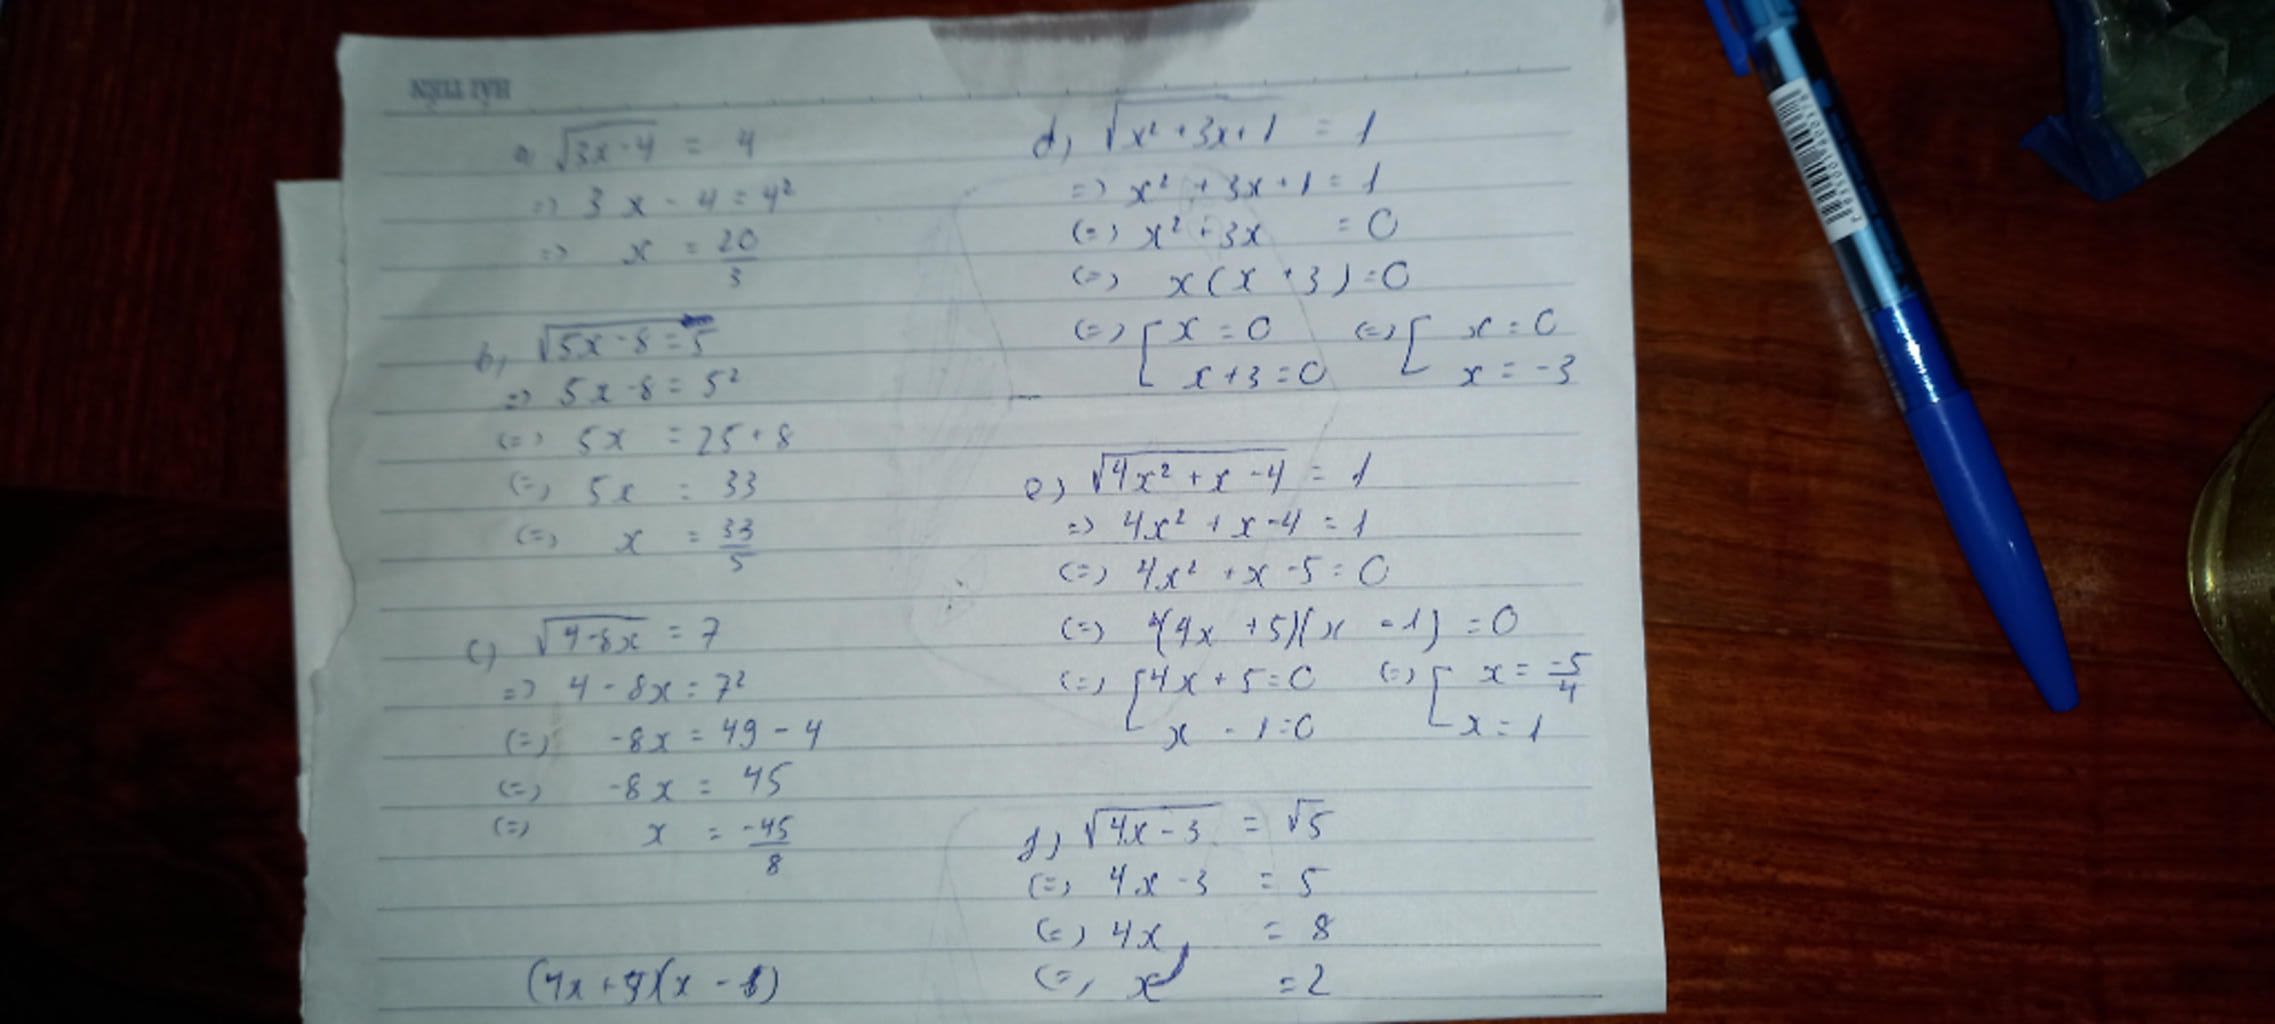 HẢI TIẾN
a, √(3x-4) = 4
=> 3x - 4 = 4²
=> x = 20/3
b, √(5x-8=5)
=> 5x-8 = 5²
(=) 5x = 25+8
(=) 5x = 33
(=) x = 33/5
c, √(4-8x) = 7
=> 4 - 8x = 7²
(=) -8x = 49 - 4
(=) -8x = 45
(=) x = -45/8
(4x+5)(x - 1)
d, √(x² + 3x+1) = 1
=> x² + 3x + 1 = 1
(=) x² + 3x = 0
(=) x(x + 3) = 0
(=) [ x = 0 (=) [ x = 0
x+3 = 0 x = -3
e, √(4x² + x - 4) = 1
=> 4x² + x - 4 = 1
(=) 4x² + x - 5 = 0
(=) (4x + 5)(x - 1) = 0
(=) [ 4x + 5 = 0 (=) [ x = -5/4
x - 1 = 0 x = 1
f, √(4x - 3) = √5
(=) 4x - 3 = 5
(=) 4x = 8
(=) x = 2